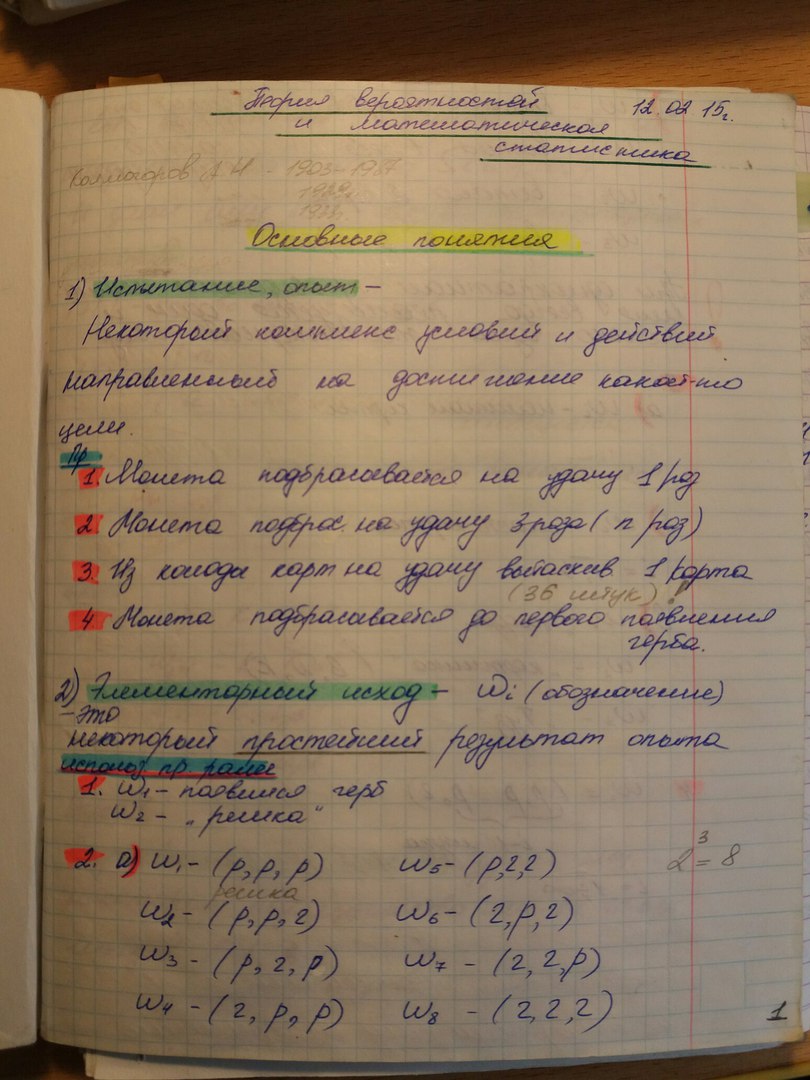 Теория вероятностей 12.02.15г.
и математическая
статистика
Колмогоров А Н - 1903-1987
Основные понятия
1) Испытание, опыт -
Некоторый комплекс условий и действий
направленный на достижение какой-то
цели.
Пр
1. Монета подбрасывается на удачу 1 раз
2. Монета подброс. на удачу 3 раза (n раз)
3. Из колоды карт на удачу вытаскив. 1 карта
(36 штук)
4 Монета подбрасывается до первого появления
герба.
2) Элементарный исход - ωi (обозначение)
- это
некоторый простейший результат опыта
использ. пр. ранее
1. ω1 - появился герб
ω2 - „ решка"
2. а) ω1 - (р, р, р) ω5 - (р,г,г) 2³ = 8
решка
ω2 - (р, р, г) ω6 - (г, р, г)
ω3 - (р, г, р) ω7 - (г, г, р)
ω4 - (г, р, р) ω8 - (г, г, г)
1